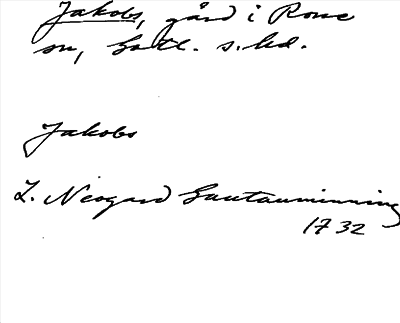 Jakobs, gård i Rone
sn, Gotl. s. hd.
Jakobs
L. Neogard Gautauminning
1732